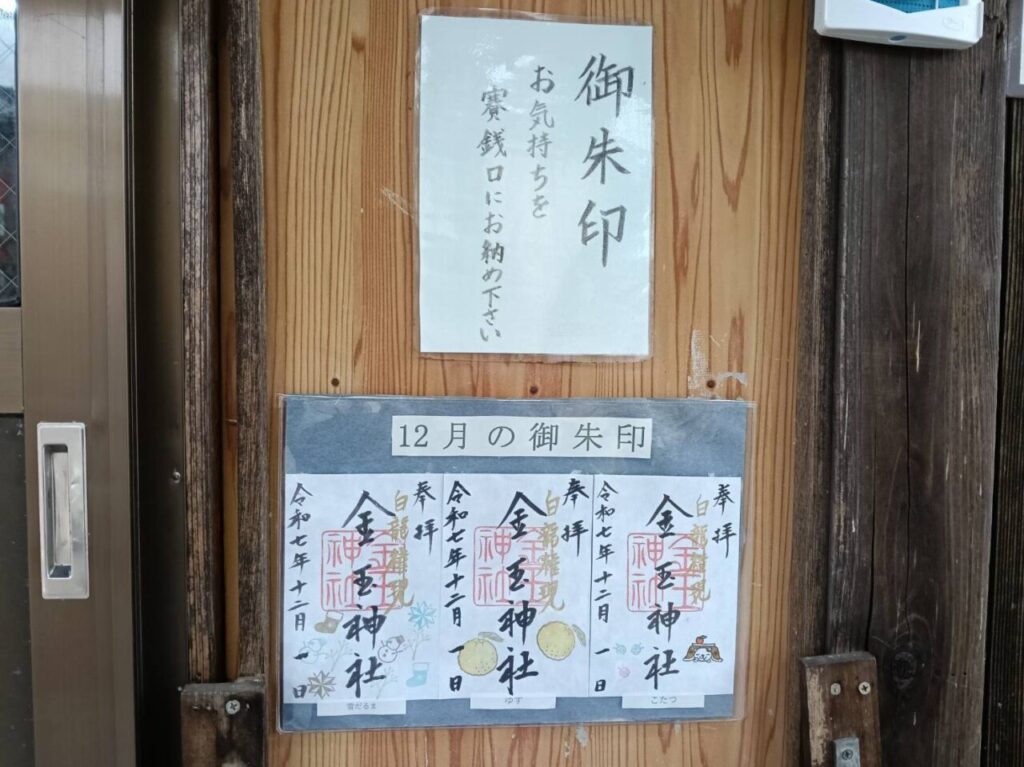 御朱印
お気持ちを
賽銭口にお納め下さい
12月の御朱印
奉拝
白龍権現
金玉神社
令和七年十二月一日
雪だるま
奉拝
白龍権現
金玉神社
令和七年十二月一日
ゆず
奉拝
白龍権現
金玉神社
令和七年十二月一日
こたつ